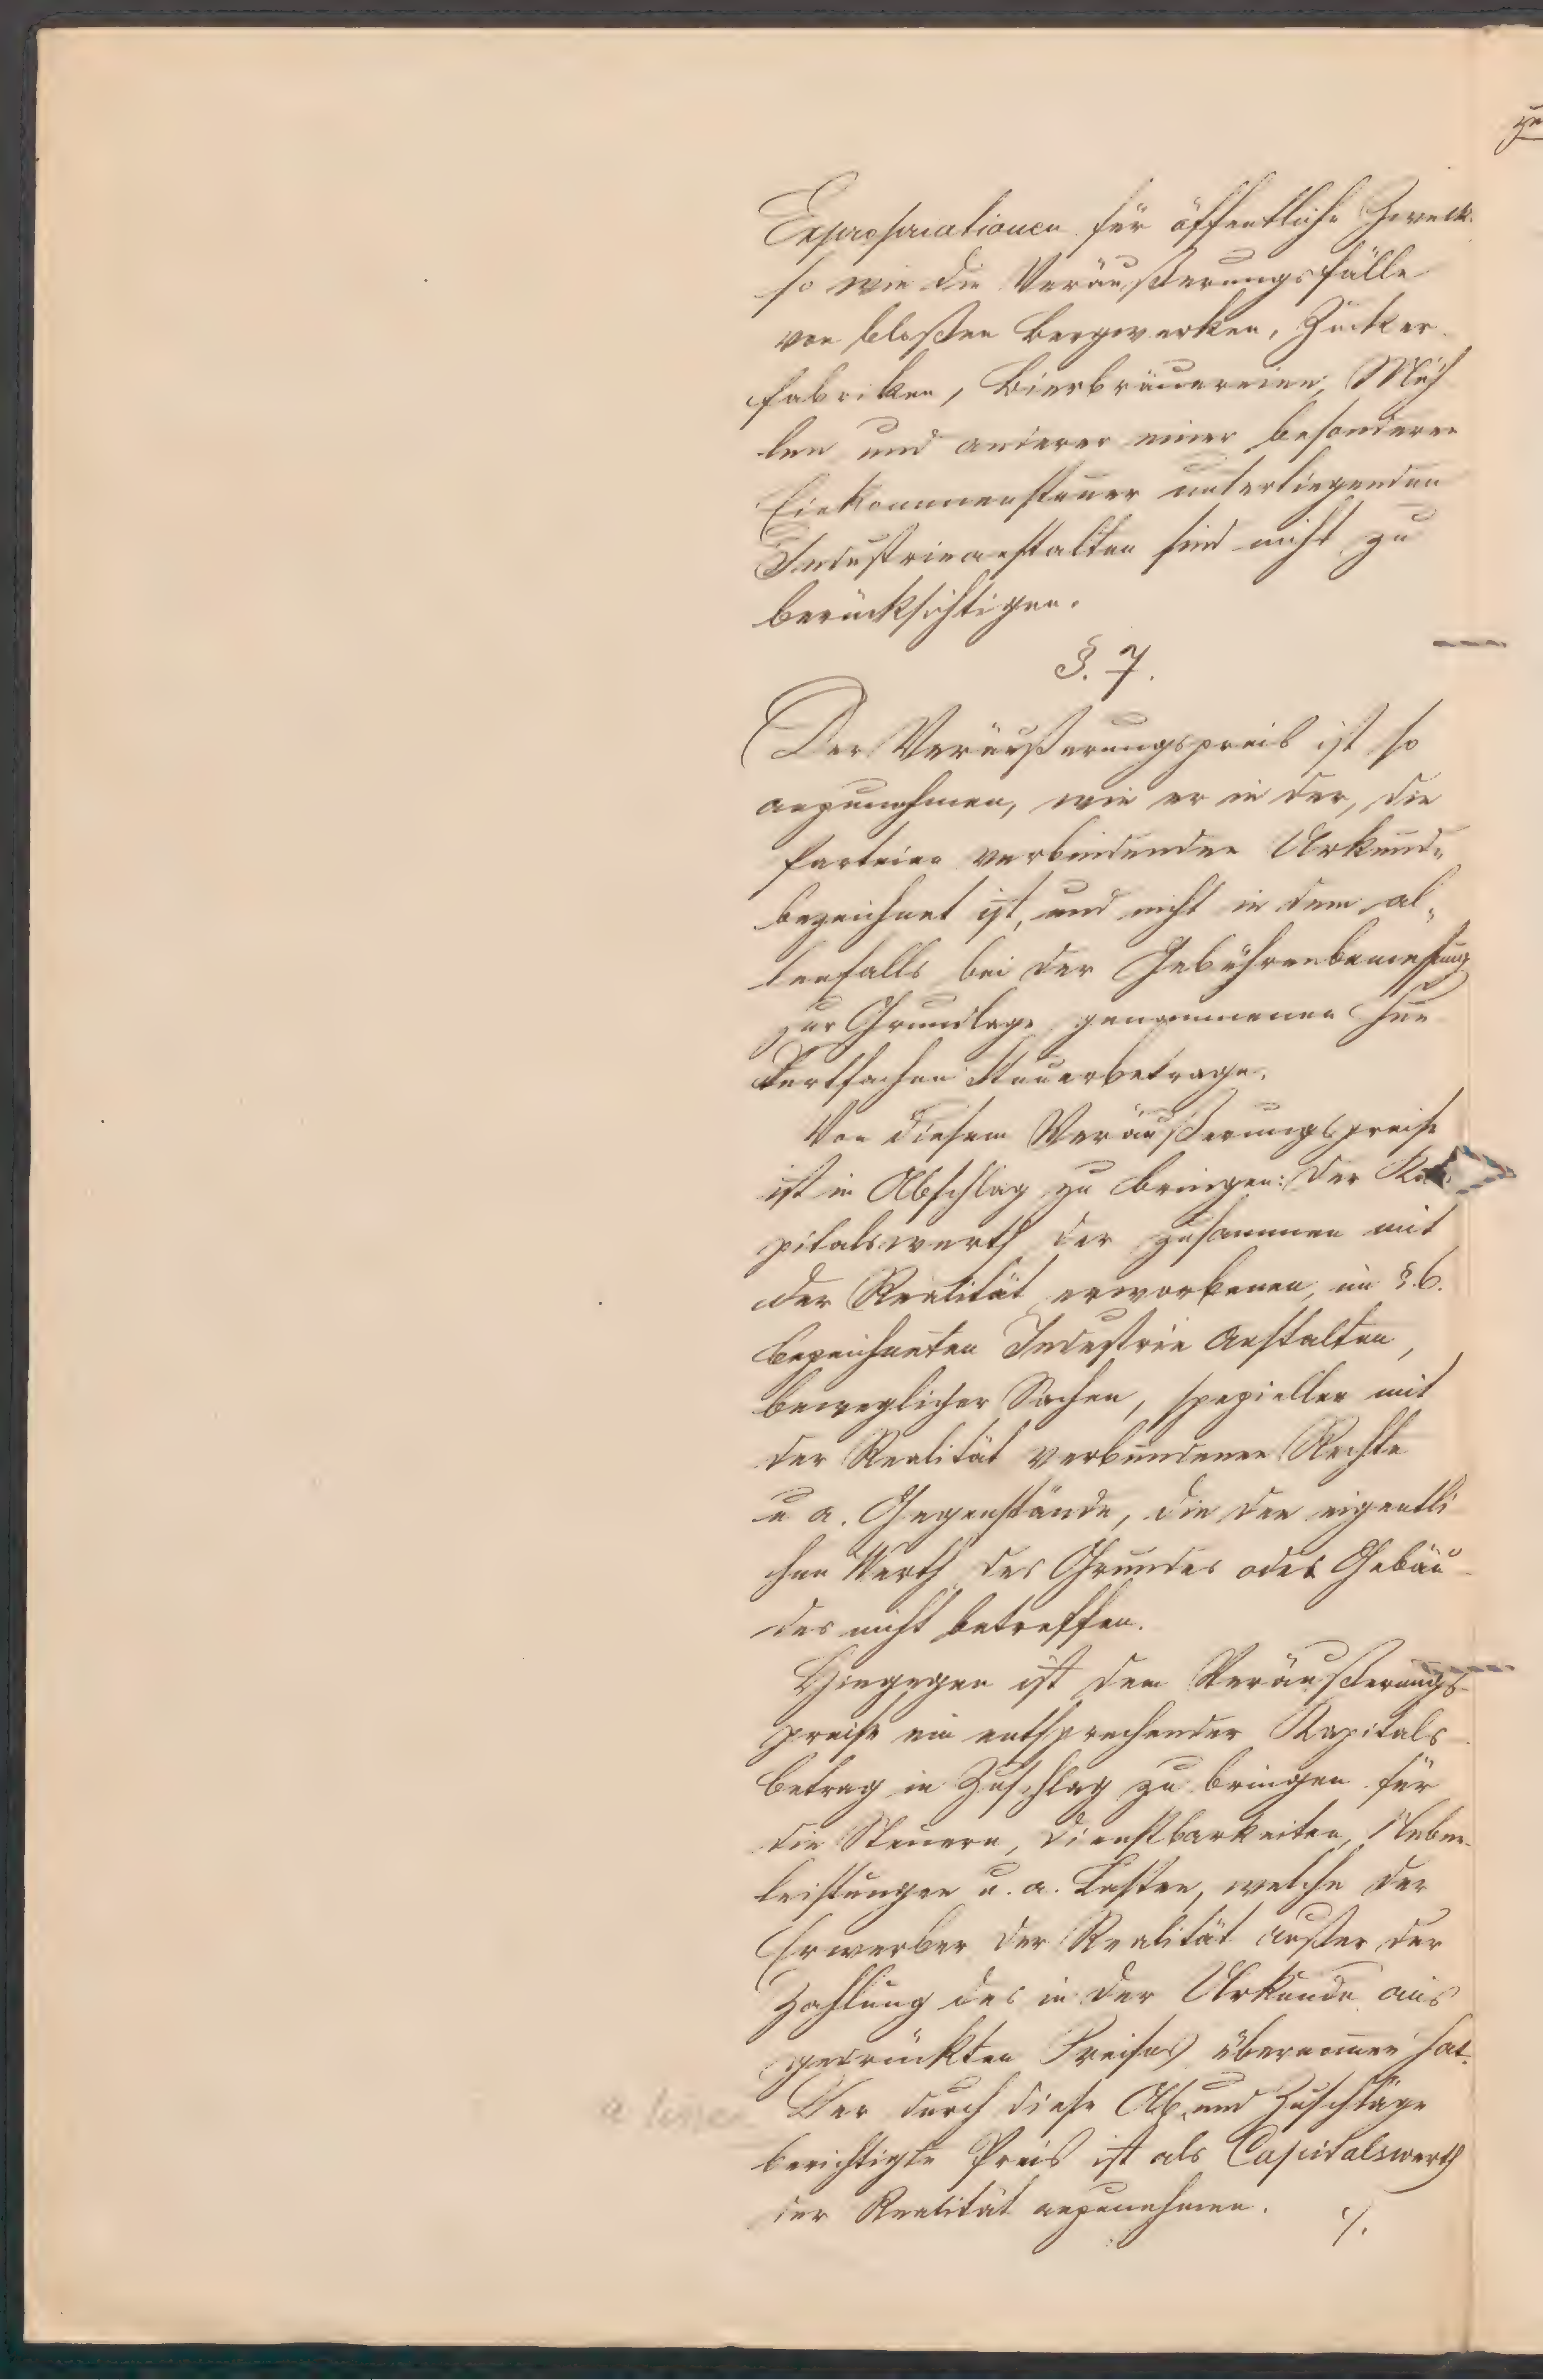 Expropriationen für öffentliche Zwecke
so wie die Veräußerungsfälle
von bloßen Bergwerken, Zucker
fabriken, Bierbräuereien, Müh
len und anderer einer besonderen
Einkommensteuer unterliegenden
Industrieanstalten sind nicht zu
berücksichtigen.
§. 7.
Der Veräußerungspreis ist so
anzunehmen, wie er in der, die
Parteien verbindenden Urkunde
bezeichnet ist, und nicht in dem al„
lenfalls bei der Gebührenbemessung
zur Grundlage genommenen hun
dertfachen Steuerbetrage.
Von diesem Veräußerungspreise
ist in Abschlag zu bringen: der Ka
pitalswerth der zusammen mit
der Realität erworbenen, im §. 6.
bezeichneten Industrie Anstalten,
beweglicher Sachen, spezieller mit
der Realität verbundener Rechte
u a. Gegenstände, die den eigentli
chen Werth des Grundes oder Gebäu
des nicht betreffen.
Hingegen ist dem Veräußerungs
preise ein entsprechender Kapitals
betrag in Zuschlag zu bringen für
die Steuern, Dienstbarkeiten, Neben
leistungen u. a. Lasten, welche der
Erwerber der Realität außer der
Zahlung des in der Urkunde aus
gedrückten Preises übernommen hat.
a linea
Der durch diese Ab„ und Zuschläge
berichtigte Preis ist als Capitalswerth
der Realität anzunehmen. ./.